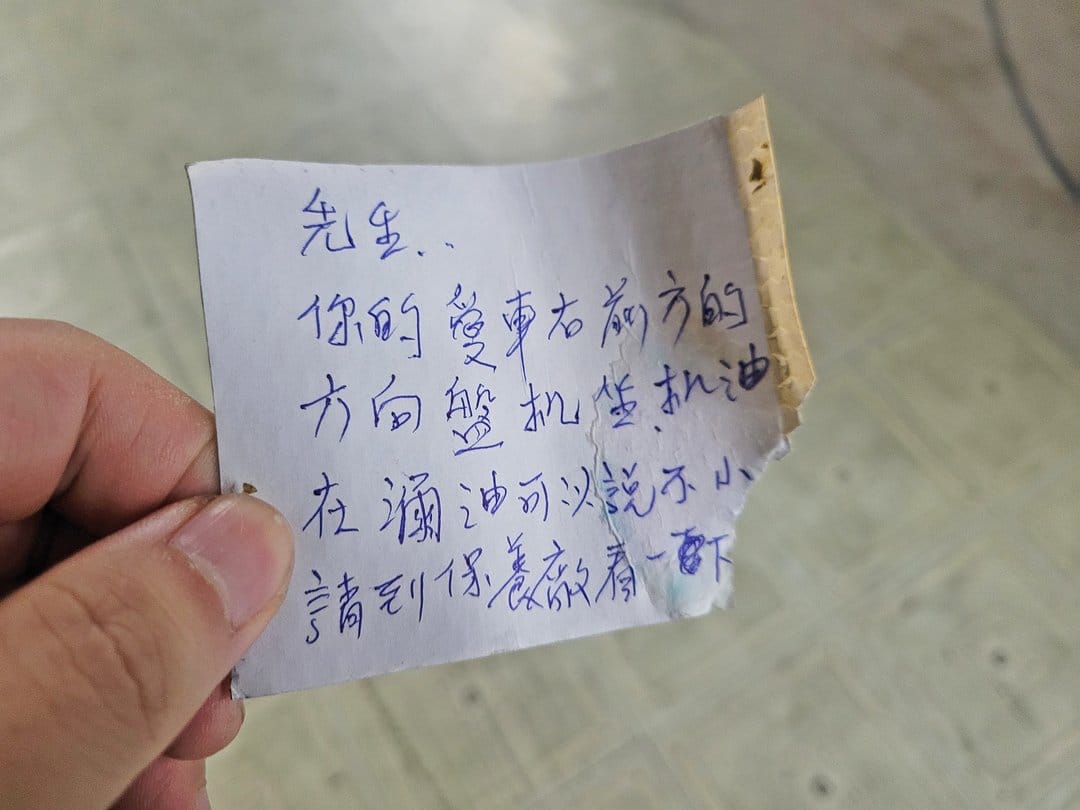 先生..
你的愛車右前方的
方向盤机坐.机油
在漏油可以說不小
請到保養廠看一下